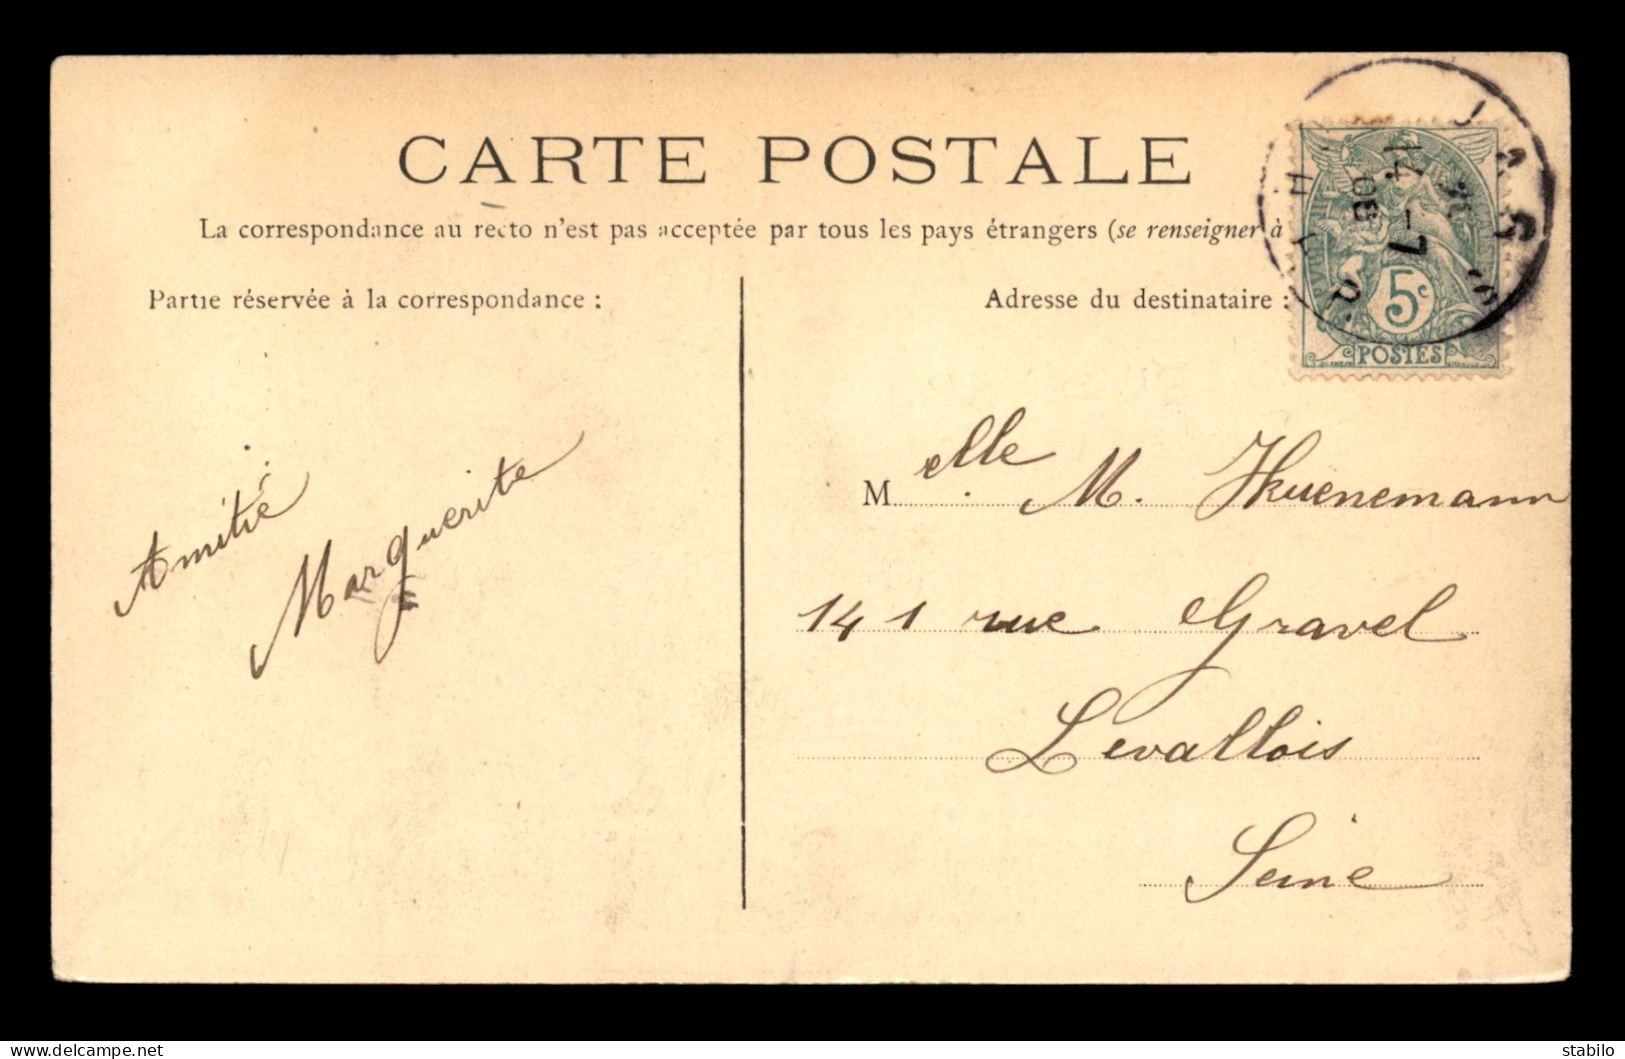 CARTE POSTALE
La correspondance au recto n'est pas acceptée par tous les pays étrangers (se renseigner à
Partie réservée à la correspondance :
Adresse du destinataire :
14 -7
08
5c
POSTES
Amitié
Marguerite
Melle M. Hkuenemann
141 rue Gravel
Levallois
Seine
stabilo